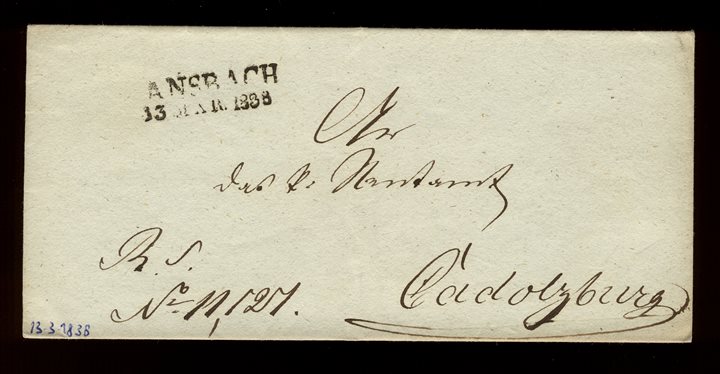 ANSBACH
13 MÄR. 1838
An
das k. Rentamt
R. S.
No 11,127.
Cadolzburg
13-3-1838